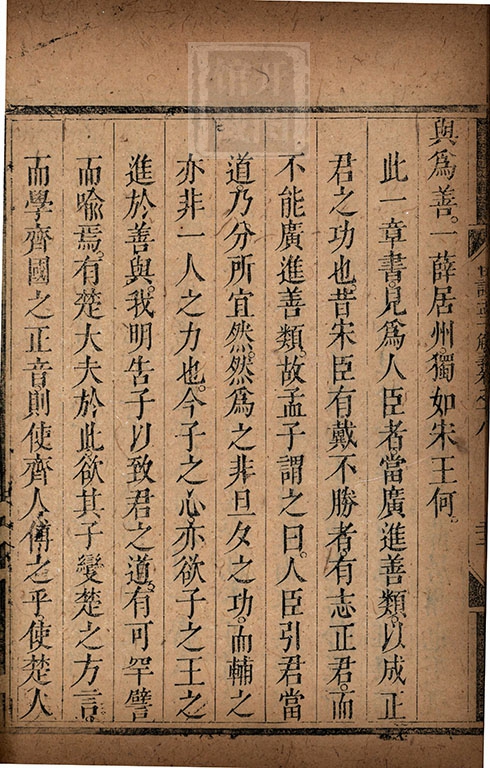 與爲善。一薛居州。獨如宋王何。
此一章書。見爲人臣者。當廣進善類。以成正
君之功也。昔宋臣有戴不勝者。有志正君。而
不能廣進善類。故孟子謂之曰。人臣引君當
道。乃分所宜然。然爲之非旦夕之功。而輔之
亦非一人之力也。今子之心。亦欲子之王之
進於善與。我明告子以致君之道。有可罕譬
而喻焉。有楚大夫於此。欲其子變楚之方言。
而學齊國之正音。則使齊人傅之乎。使楚人